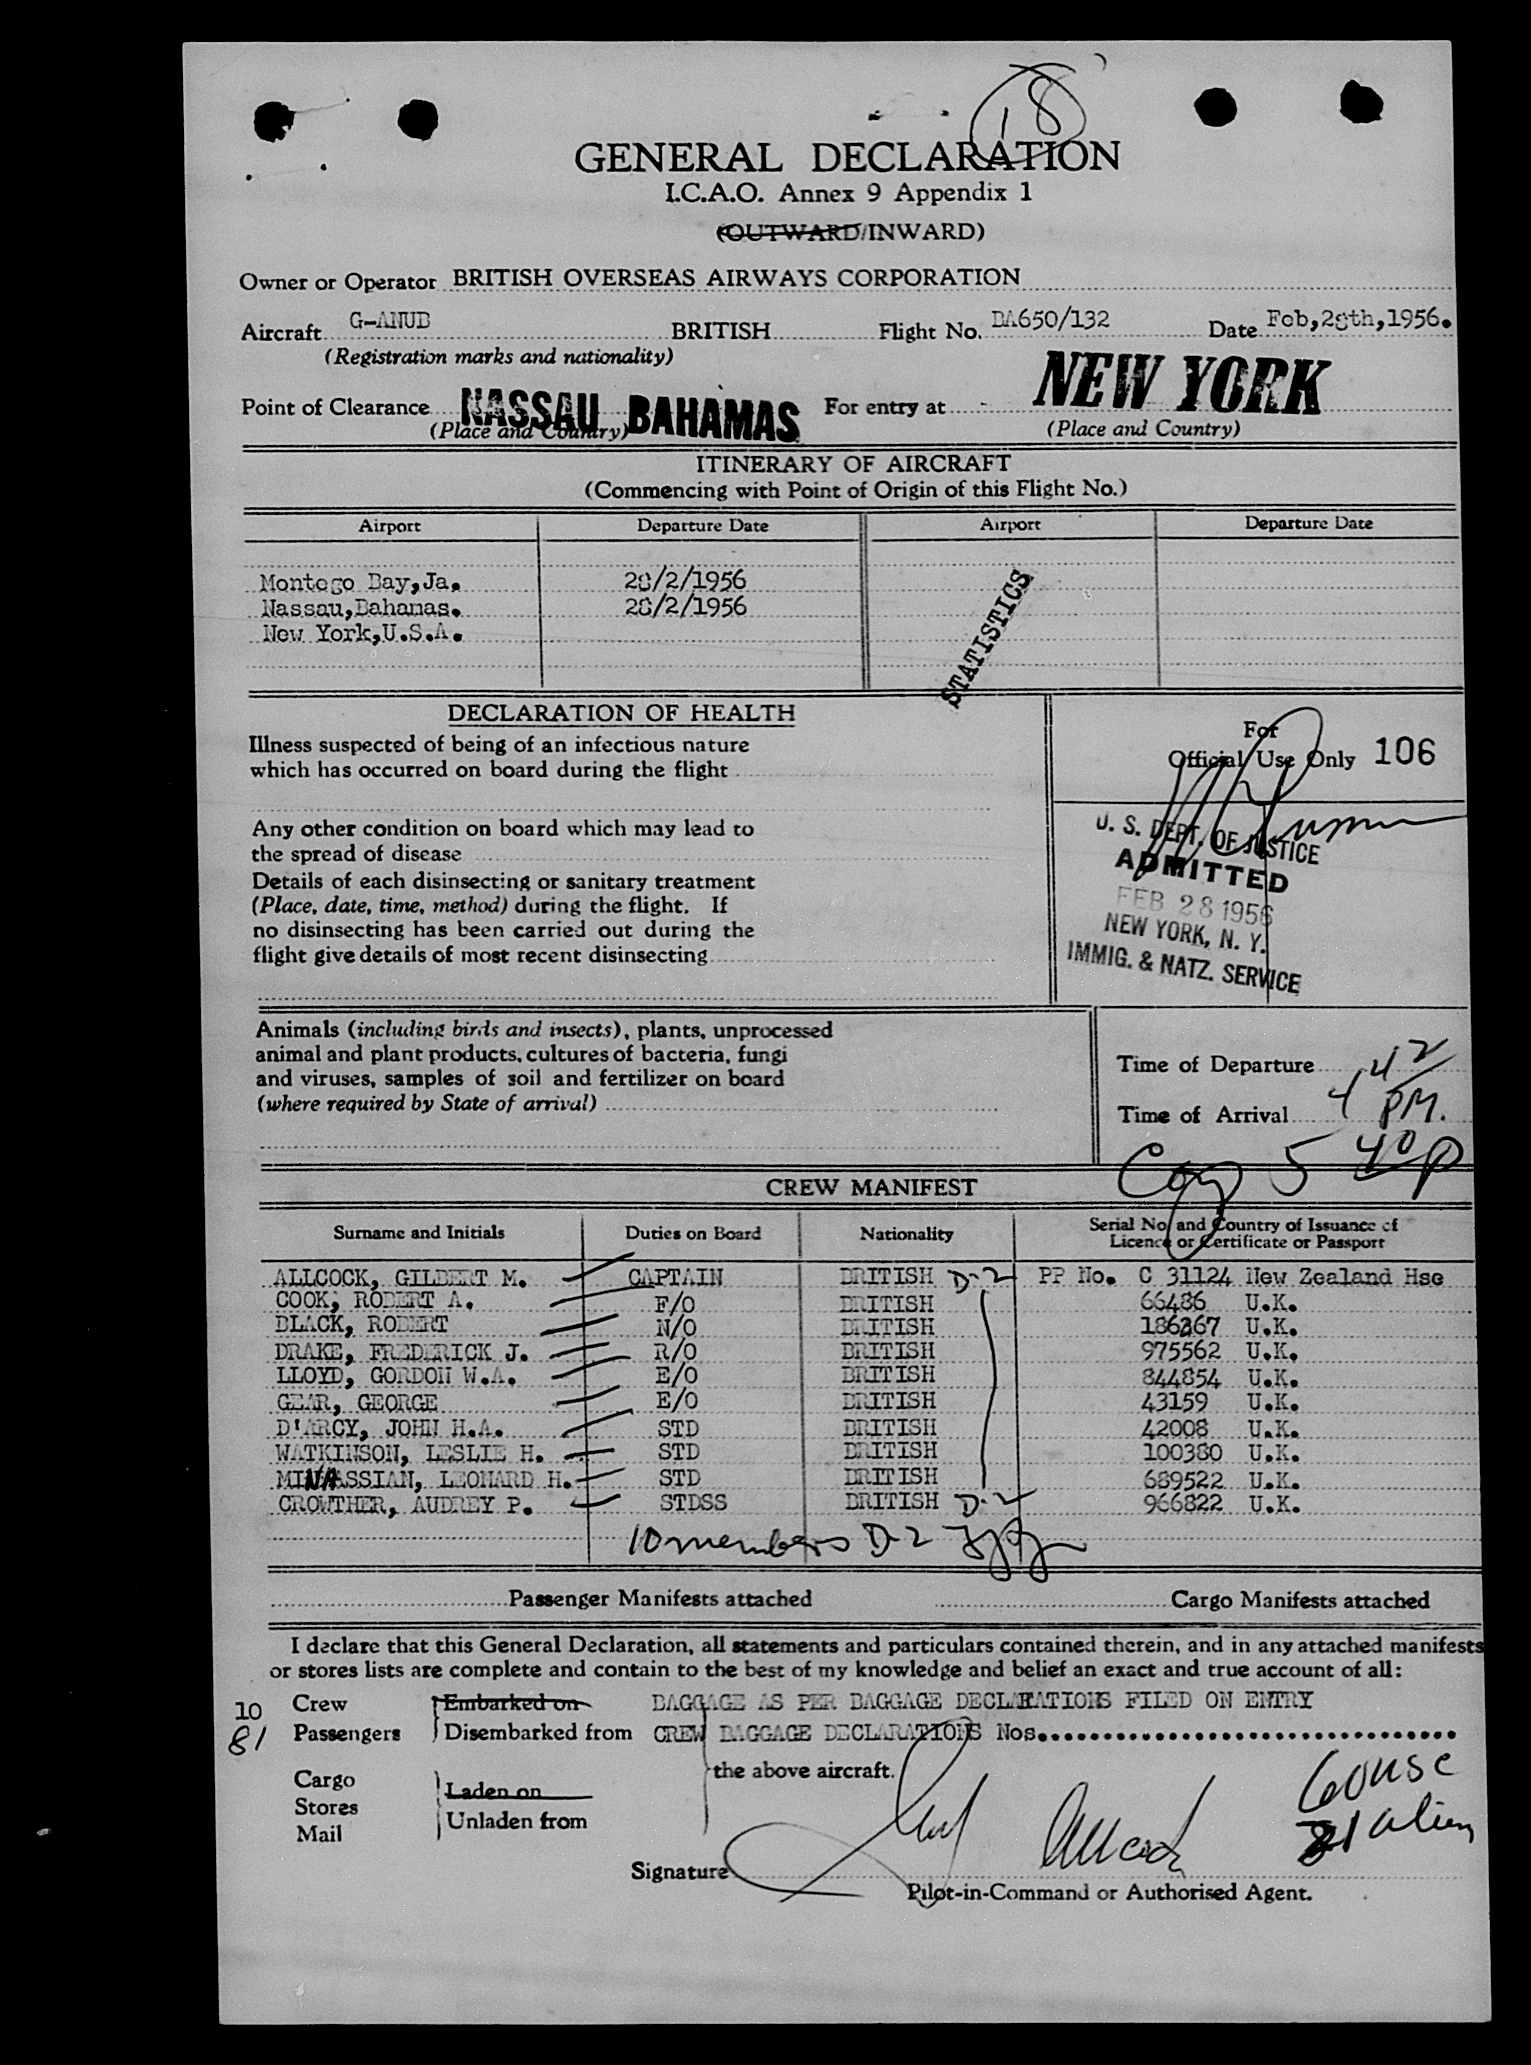 18
GENERAL DECLARATION
I.C.A.O. Annex 9 Appendix 1
(OUTWARD/INWARD)
Owner or Operator BRITISH OVERSEAS AIRWAYS CORPORATION
Aircraft G-ANUB BRITISH Flight No. BA650/132 Date Feb,28th,1956.
(Registration marks and nationality)
Point of Clearance NASSAU BAHAMAS For entry at - NEW YORK
(Place and Country) (Place and Country)
ITINERARY OF AIRCRAFT
(Commencing with Point of Origin of this Flight No.)
Airport Departure Date Airport Departure Date
Montego Bay,Ja. 28/2/1956
Nassau,Bahamas. 28/2/1956
New York,U.S.A.
STATISTICS
DECLARATION OF HEALTH
Illness suspected of being of an infectious nature
which has occurred on board during the flight
Any other condition on board which may lead to
the spread of disease
Details of each disinsecting or sanitary treatment
(Place, date, time, method) during the flight. If
no disinsecting has been carried out during the
flight give details of most recent disinsecting
For
Official Use Only 106
U. S. DEPT. OF JUSTICE
ADMITTED
FEB 28 1956
NEW YORK, N. Y.
IMMIG. & NATZ. SERVICE
Animals (including birds and insects), plants, unprocessed
animal and plant products, cultures of bacteria, fungi
and viruses, samples of soil and fertilizer on board
(where required by State of arrival)
Time of Departure
Time of Arrival 4 42 PM.
5 40 P
CREW MANIFEST
Surname and Initials Duties on Board Nationality Serial No. and Country of Issuance of
Licence or Certificate or Passport
ALLCOCK, GILBERT M. CAPTAIN BRITISH D-2 PP No. C 31124 New Zealand Hse
COOK, ROBERT A. F/O BRITISH 66486 U.K.
BLACK, ROBERT N/O BRITISH 186267 U.K.
DRAKE, FREDERICK J. R/O BRITISH 975562 U.K.
LLOYD, GORDON W.A. E/O BRITISH 844854 U.K.
GEAR, GEORGE E/O BRITISH 43159 U.K.
D'ARCY, JOHN H.A. STD BRITISH 42008 U.K.
WATKINSON, LESLIE H. STD BRITISH 100380 U.K.
MINASSIAN, LEONARD H. STD BRITISH 689522 U.K.
CROWTHER, AUDREY P. STDSS BRITISH D-2 966822 U.K.
10 members D-2
Passenger Manifests attached Cargo Manifests attached
I declare that this General Declaration, all statements and particulars contained therein, and in any attached manifests
or stores lists are complete and contain to the best of my knowledge and belief an exact and true account of all:
10 Crew Embarked on BAGGAGE AS PER BAGGAGE DECLARATIONS FILED ON ENTRY
81 Passengers Disembarked from CREW BAGGAGE DECLARATIONS Nos.
the above aircraft.
Cargo
Stores
Mail
Laden on
Unladen from
60 USC
21 alien
Signature Allcock
Pilot-in-Command or Authorised Agent.